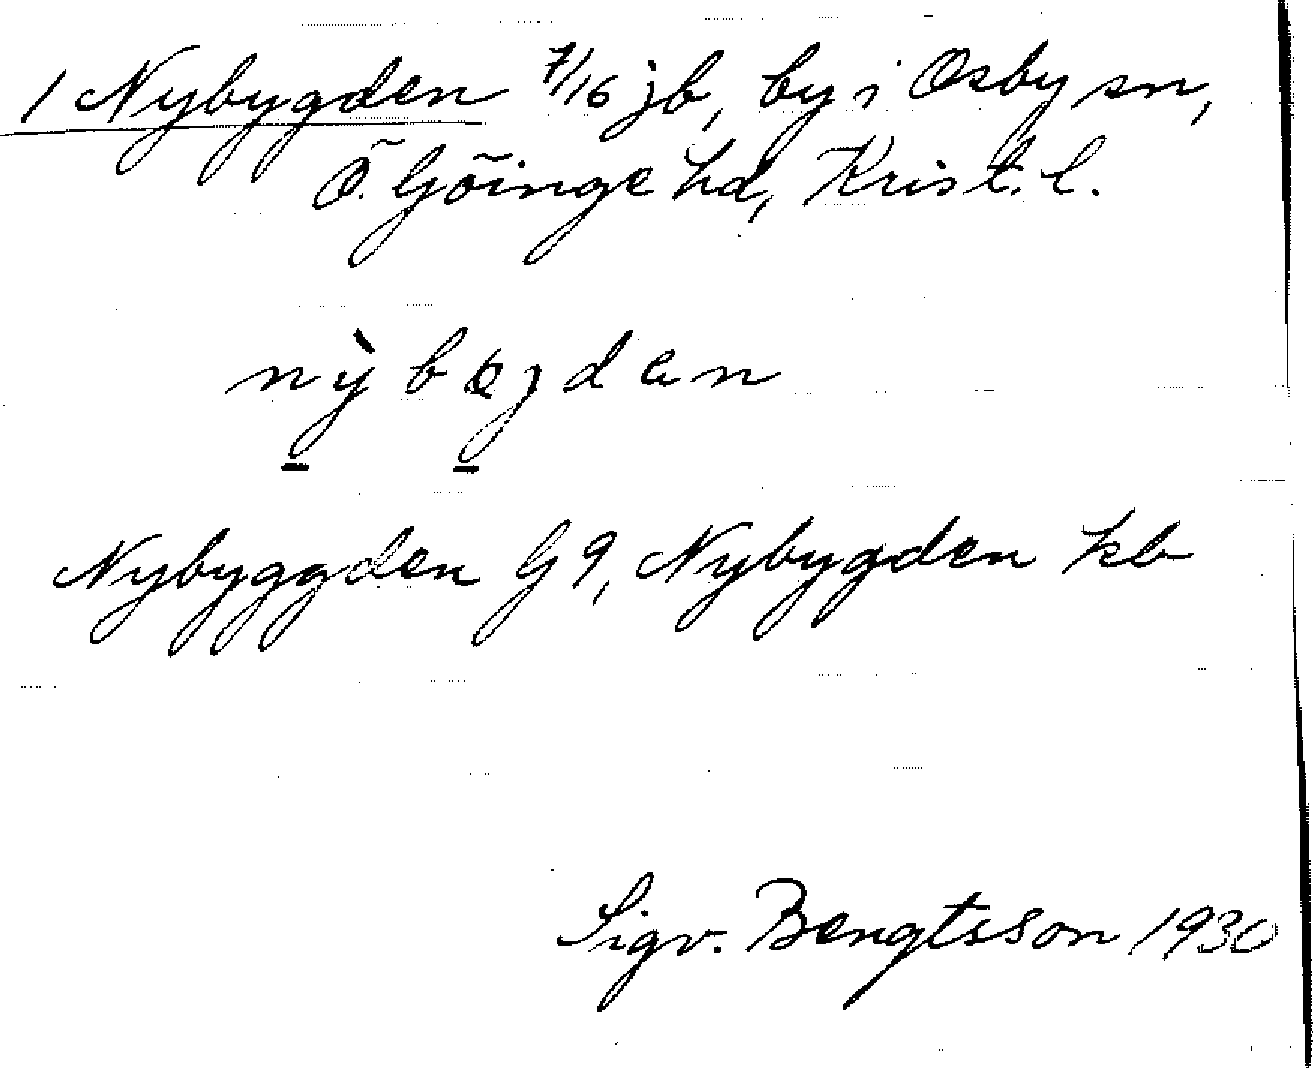 1 Nybygden 7/16 jb, by i Osby sn,
Ö. Göinge hd, Krist. l.
Nybyggden G 9, Nybygden kb
Sigv. Bengtsson 1930